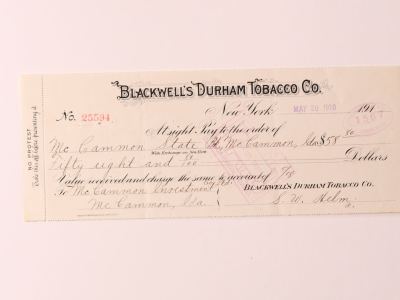 BLACKWELL'S DURHAM TOBACCO CO.
No. 25594
New York MAY 20 1910 191
1507
At sight Pay to the order of
Mc Cammon State Bk, McCammon, Ida $58
Fifty eight and Dollars
With Exchange on New York
Value received and charge the same to account of
To McCammon Investment BLACKWELL'S DURHAM TOBACCO CO.
Mc Cammon, Ida S. W. Helm
NO PROTEST
Take this off before presenting it